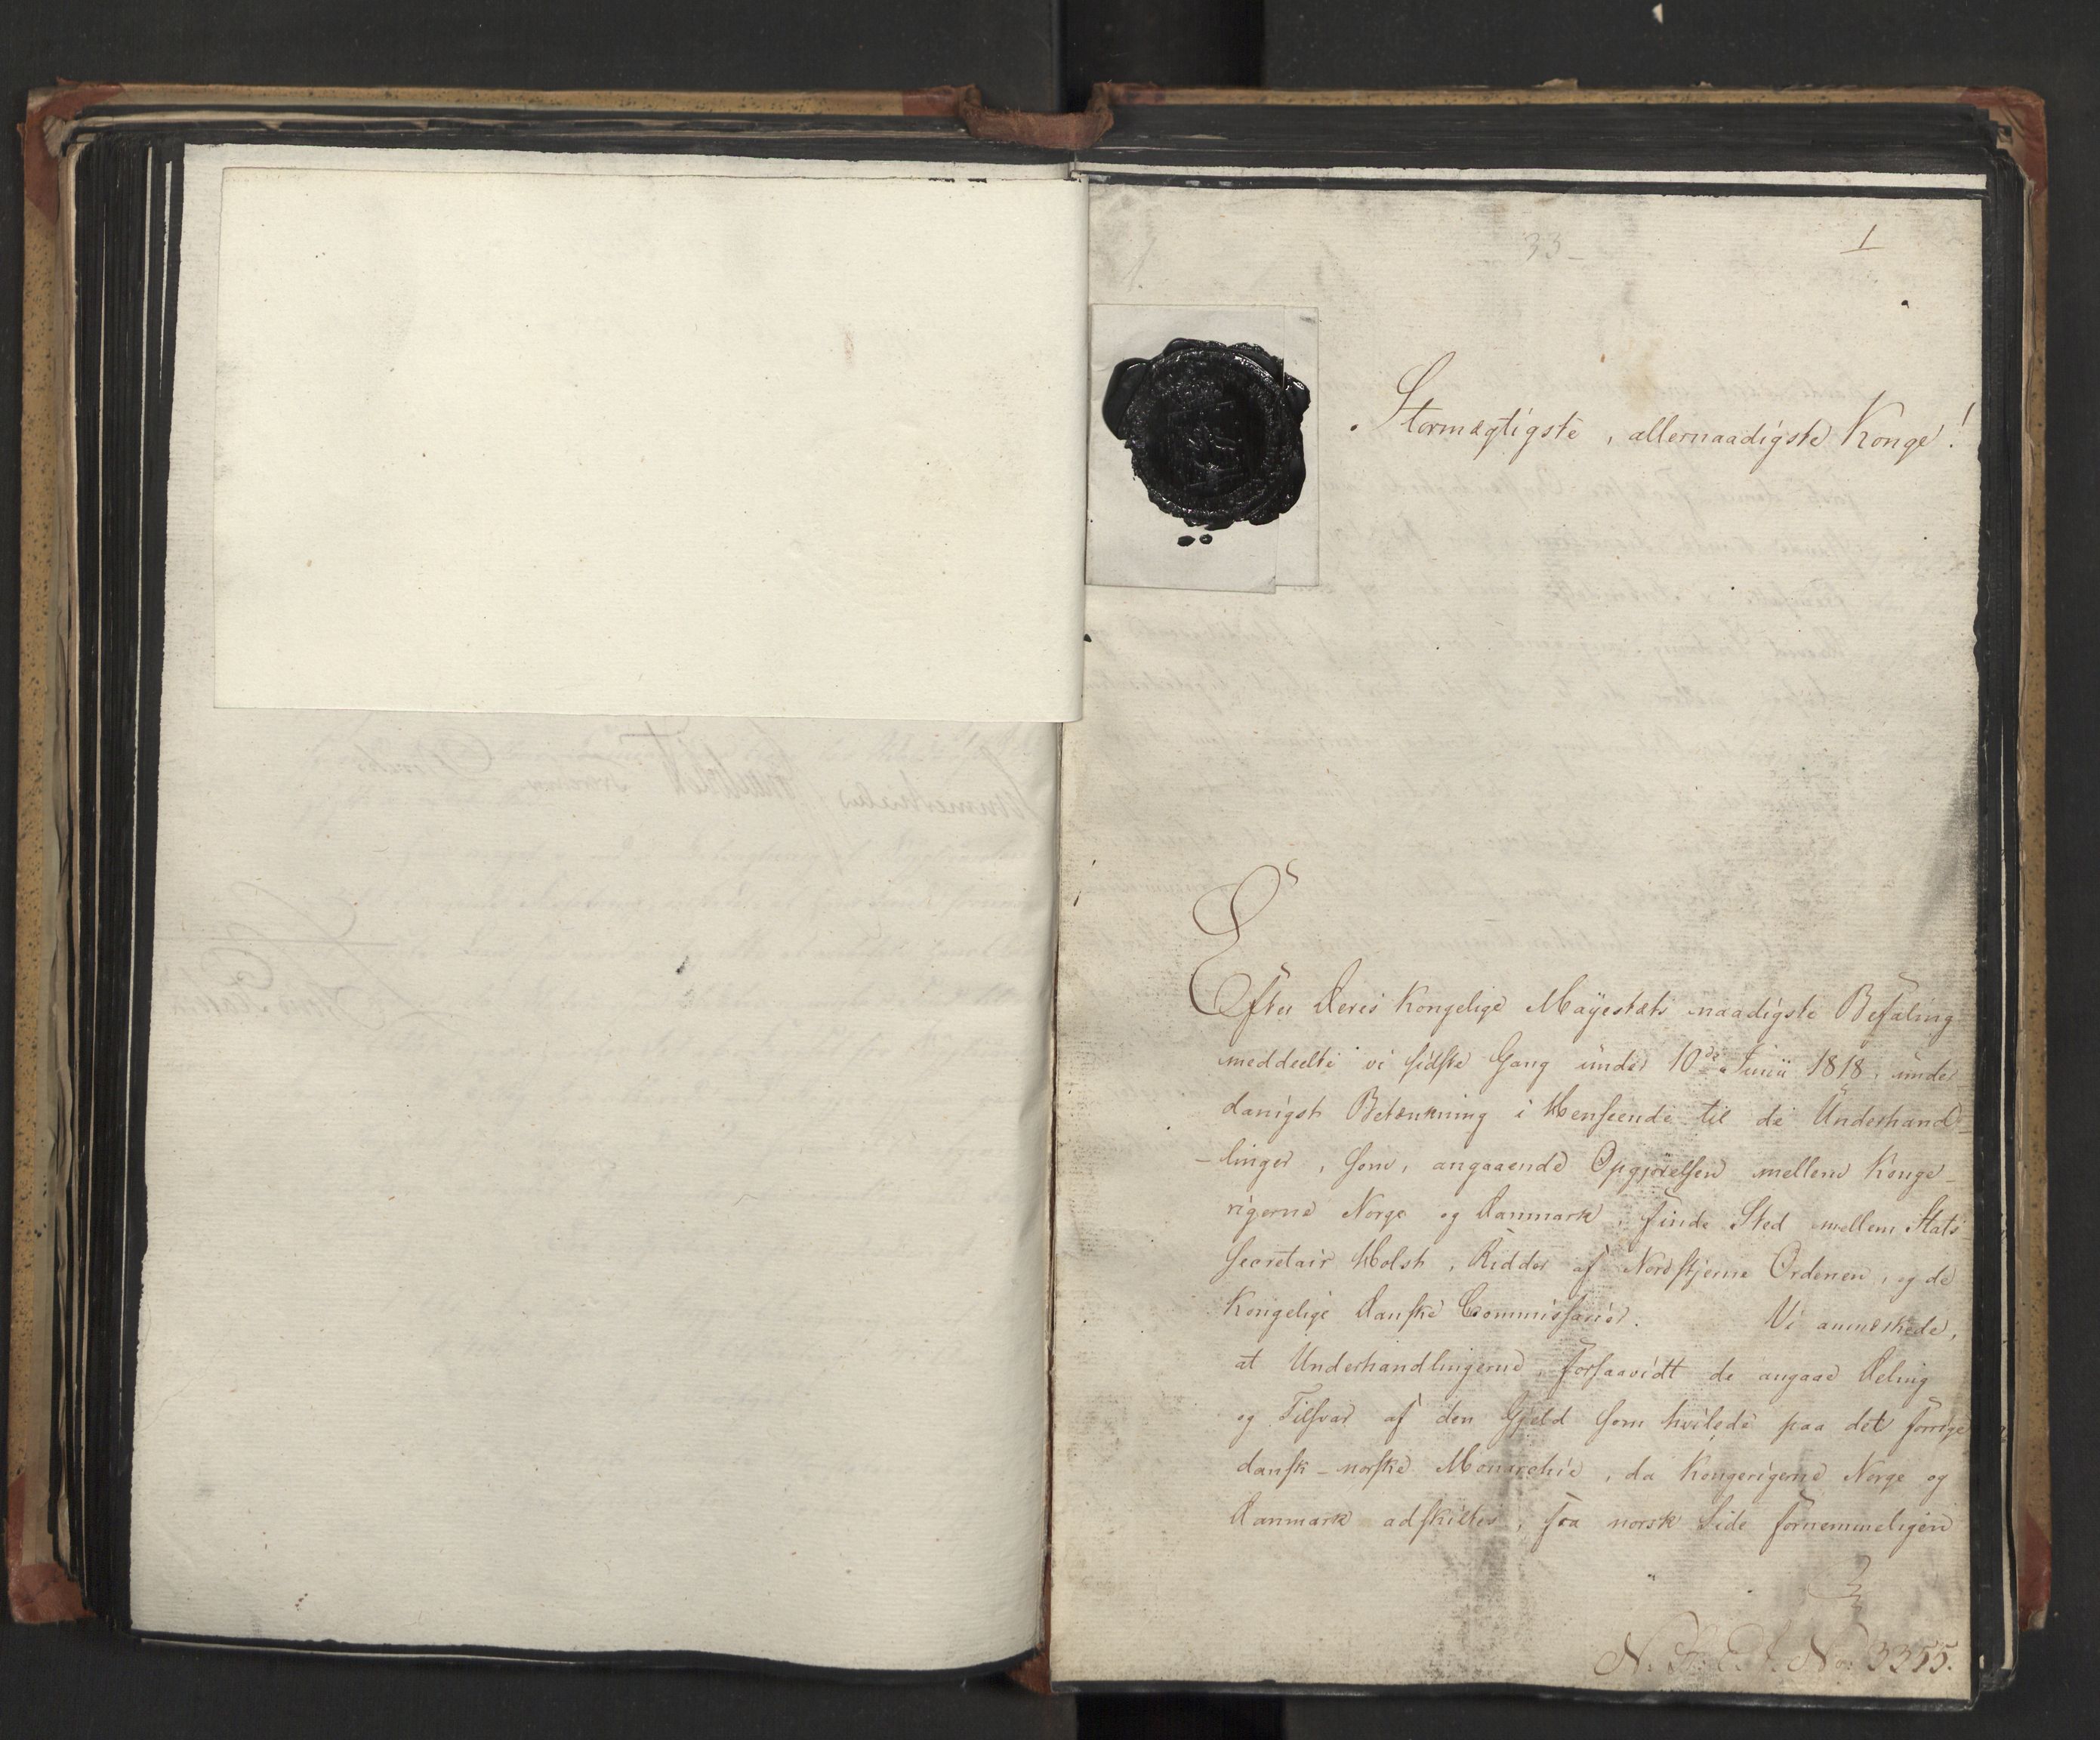 33
1
Stormægtigste, allernaadigste Konge!
Efter Deres Kongelige Mayestæts naadigste Befaling
meddeelte vi sidste Gang under 10de Junii 1818 under-
danigst Betænkning i Henseende til de Underhand-
-linger, som, angaaende Opgjørelsen mellem Konge-
rigerne Norge og Danmark, finde Sted mellem Stats
Secretair Holst, Ridder af Nordstjerne Ordenen, og de
Kongelige Danske Commissarier. Vi anmærkede,
at Underhandlingerne, forsaavidt de angaae Deling
og Tilsvar af den Gjeld som hvilede paa det forrige
dansk-norske Monarchie, da Kongerigerne Norge og
Danmark adskiltes, fra norsk Side fornemmeligen
No. 3355.